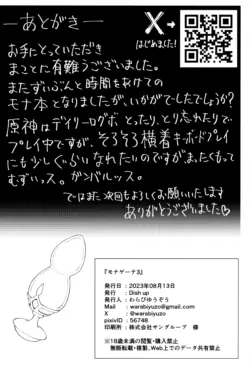 ―あとがき―
X
はじめました!
お手にとっていただき
まことに有難うございました。
またずいぶんと時間をあけての
モナ本となりましたが、いかがでしたでしょうか?
原神はデイリーログボとったり、とり忘れたりで
プレイ中ですが、そろそろ横着キーボードプレイ
にも少しぐらいなれたいのですが、まったくもって
むずいッス。ガンバルッス。
ではまた次回もよろしくお願いいたします
ありがとうございました♡
『モナゲーテ3』
発行日 : 2023年08月13日
発行 : Dish up
発行者 : わらびゆうぞう
Mail : warabiyuzo@gmail.com
X : @warabiyuzo
pixivID : 56748
印刷所 : 株式会社サングループ 様
※18歳未満の閲覧・購入禁止
無断転載・複製、Web上でのデータ共有禁止